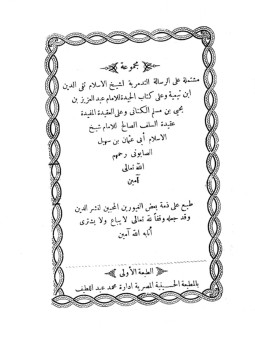 مجموعة
مشتملة على الرسالة التدمرية لشيخ الاسلام تقى الدين
ابن تيمية وعلى كتاب الحيدة للامام عبد العزيز بن
يحيى بن مسلم الكنانى وعلى العقيدة المفيدة
عقيدة السلف الصالح للامام شيخ
الاسلام أبى عثمان بن سهيل
الصابونى رحمهم
الله تعالى
آمين
طبع على ذمة بعض الغيورين المحبين لنشر الدين
وقد جعله وقفا لله تعالى لا يباع ولا يشترى
أثابه الله آمين
الطبعة الأولى
بالمطبعة الحسينية المصرية ادارة محمد عبد اللطيف